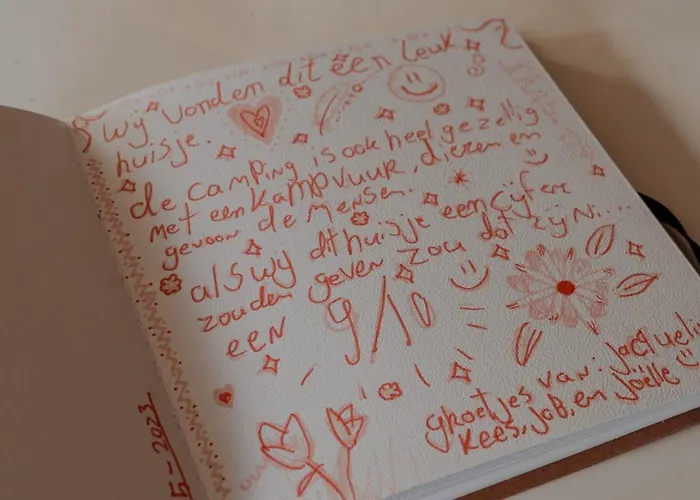 wij vonden dit een leuk
huisje.
de camping is ook heel gezellig
met een kampvuur, dieren en
gewoon de mensen.
als wij dit huisje een cijfer
zouden geven zou dat zijn....
een 9/10
groetjes van: jacqueli
Kees, Job, en Joëlle
5-2023